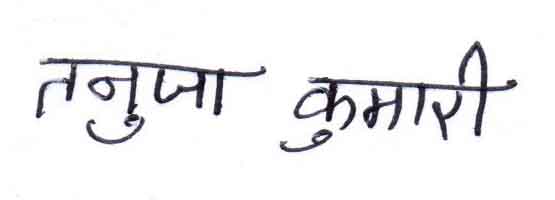 तनुजा कुमारी